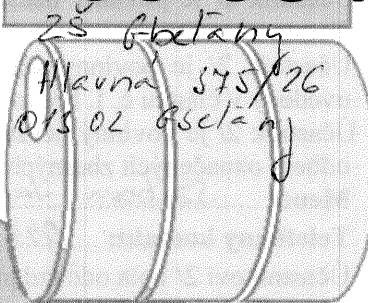 ZŠ Gbeľany
Hlavná 375/26
013 02 Gbeľany